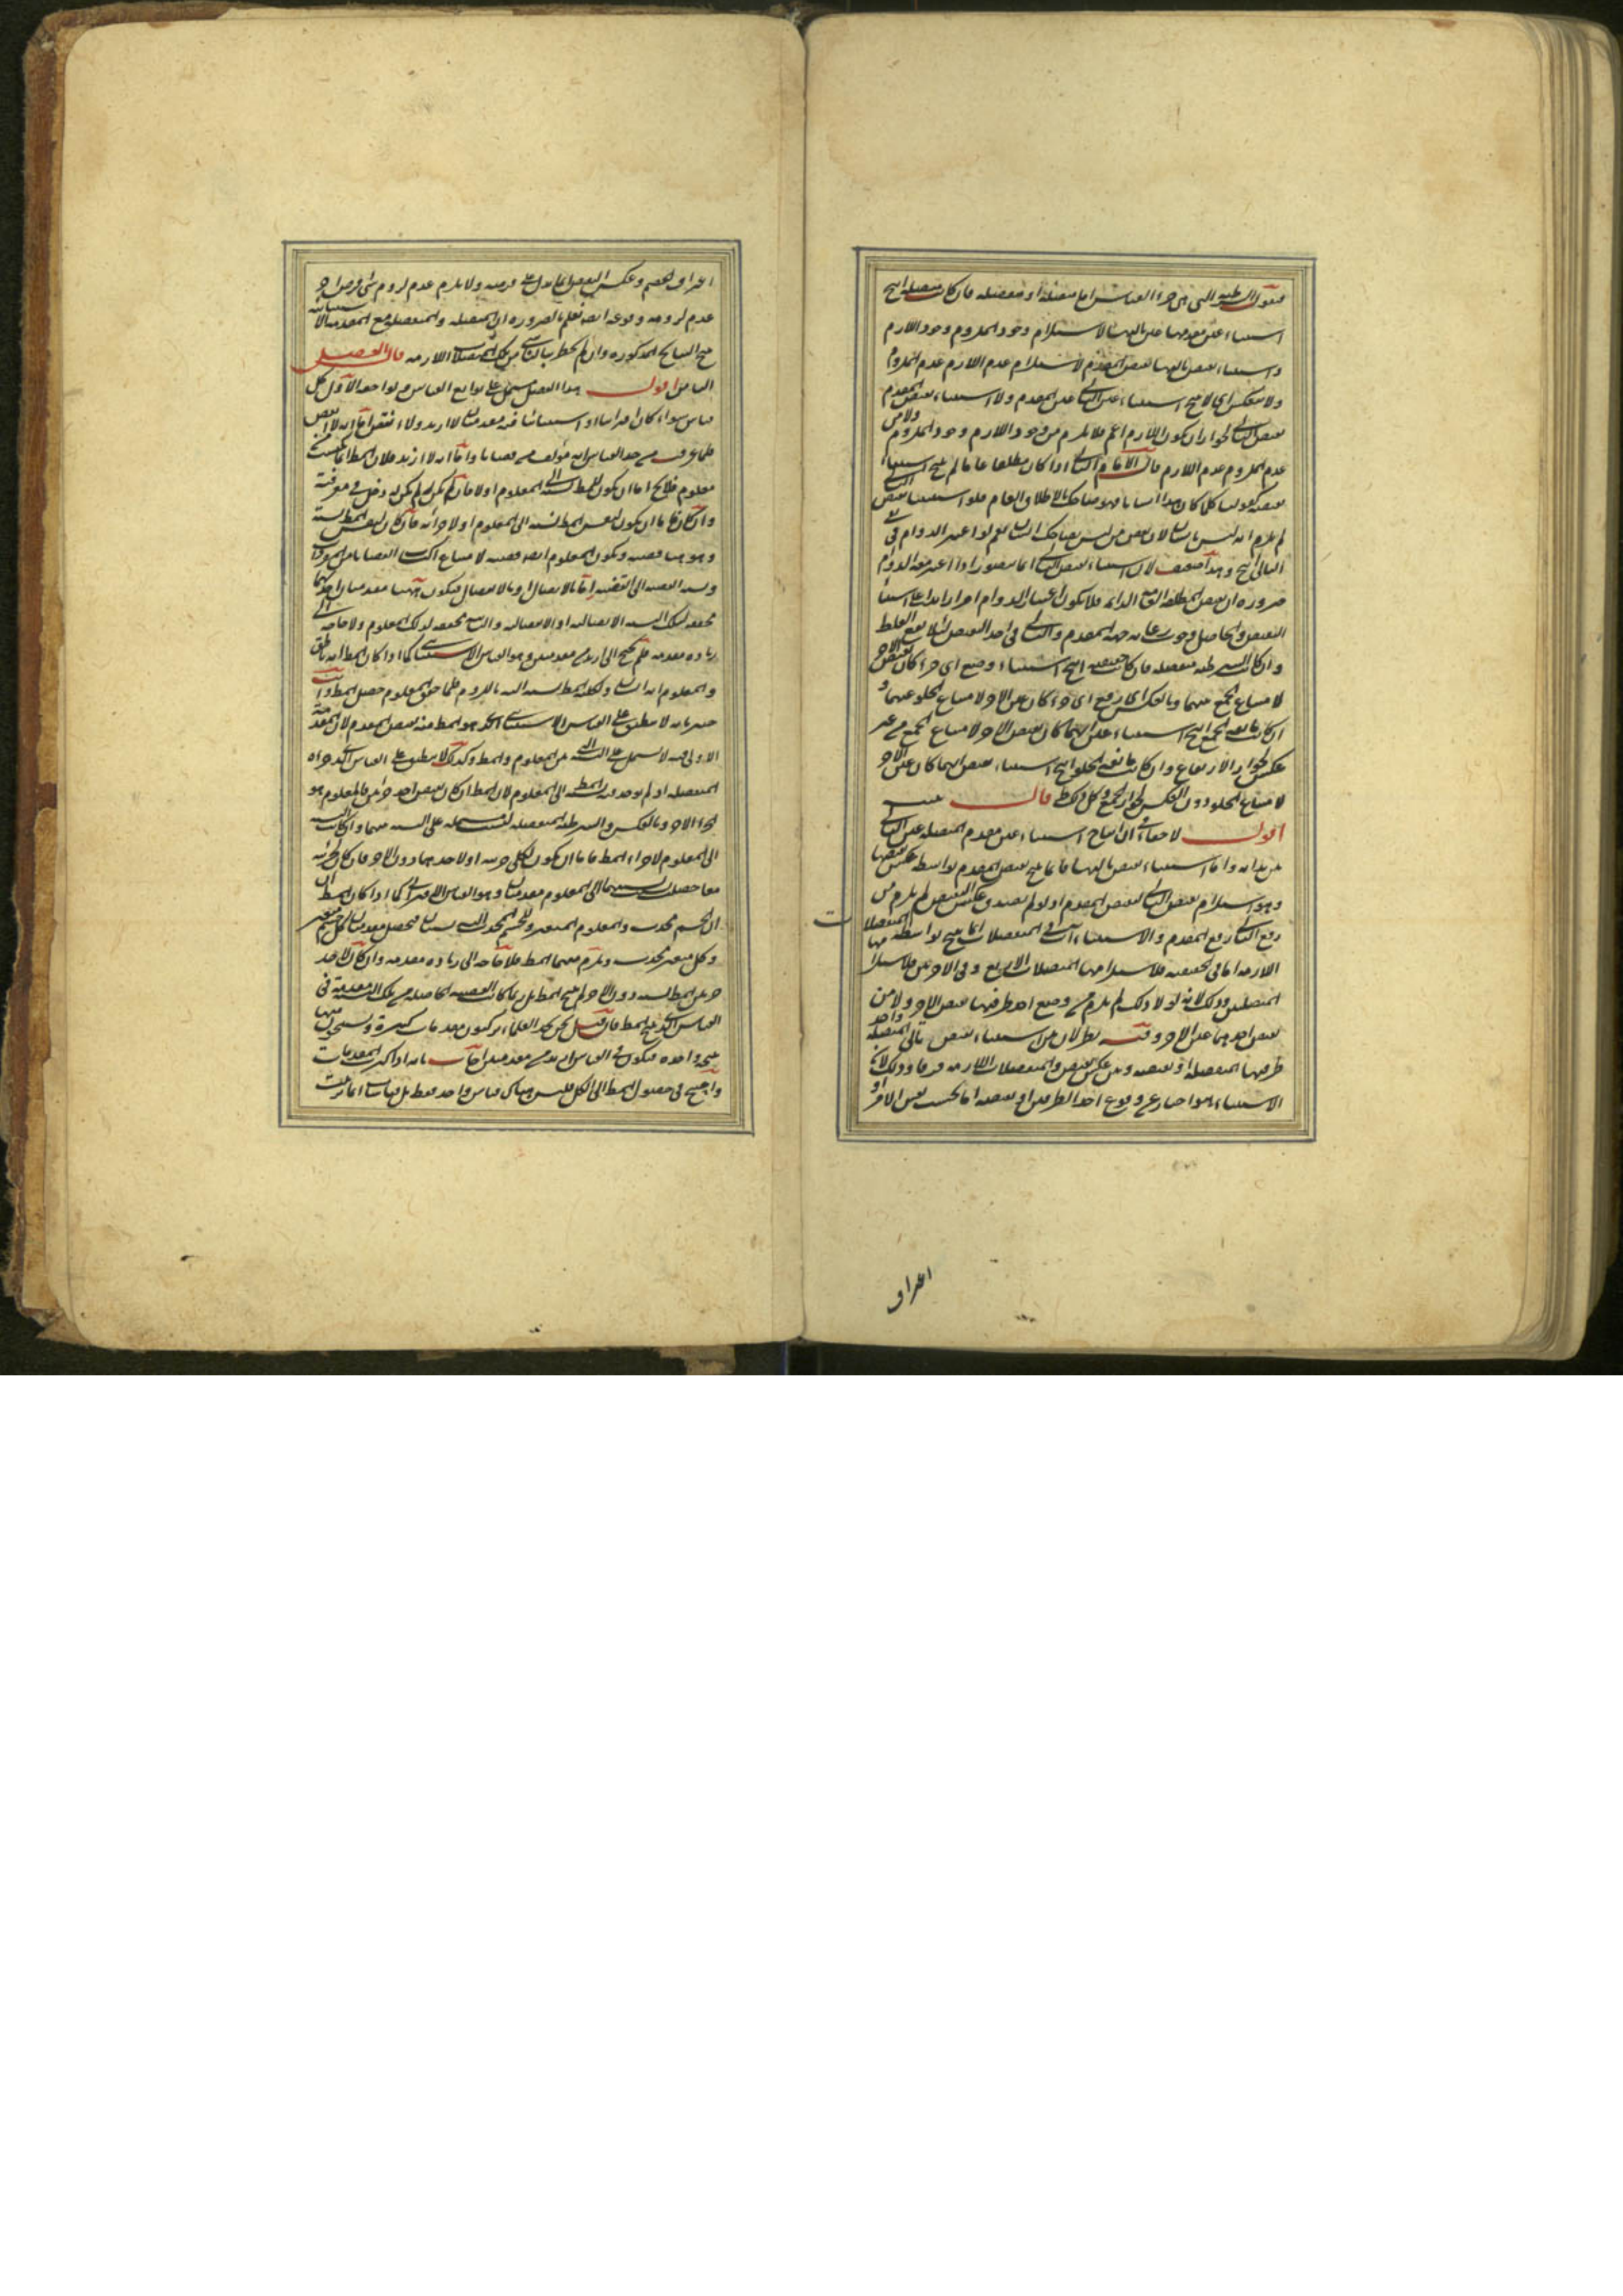 فنقول الشرطية التي هي جزء القياس اما متصلة او منفصلة فان كانت متصلة انتج
استثناء عين مقدمها عين تاليها لاستلزام وجود الملزوم وجود اللازم
واستثناء نقيض تاليها نقيض المقدم لاستلزام عدم اللازم عدم الملزوم
ولا ينعكس اى لا ينتج استثناء عين التالى عين المقدم ولا استثناء نقيض المقدم
نقيض التالى لجواز ان يكون اللازم اعم فلا يلزم من وجود اللازم وجود الملزوم ولا من
عدم الملزوم عدم اللازم قال الامام التالى اذا كان مطلقا عاما لم ينتج استثناء
نقيضه كقولنا كلما كان هذا انسانا فهو ضاحك بالاطلاق العام فلو استثنينا نقيض التالى
لم يلزم انه ليس بانسان لان بعض من ليس بضاحك انسان نعم لو اعتبر الدوام فى
التالى انتج وهذا ضعيف لان استثناء نقيض التالى انما يتصور اذا اعتبر معه الدوام
ضرورة ان نقيض المطلقة العامة الدائمة فلا يكون اعتبار الدوام امرا زائدا على استثناء
النقيض والحاصل وجوب رعاية جهة المقدم والتالى فى اخذ النقيض لئلا يقع الغلط
وان كانت الشرطية منفصلة فان كانت حقيقية انتج استثناء وضع اى جزء كان نقيض الاخر
لامتناع الجمع بينهما وبالعكس اى رفع اى جزء كان عين الاخر لامتناع الخلو عنهما و
ان كانت مانعة الجمع انتج استثناء عين ايهما كان نقيض الاخر لامتناع الجمع من غير
عكس لجواز الارتفاع وان كانت مانعة الخلو انتج استثناء نقيض ايهما كان عين الاخر
لامتناع الخلو دون العكس لجواز الجمع وكل ذلك ظ قال
اقول لا خفاء فى ان انتاج استثناء عين مقدم المتصلة عين التالى
بين بذاته واما استثناء نقيض تاليها فانما ينتج نقيض المقدم بواسطة عكس نقيضها
وهو استلزام نقيض التالى لنقيض المقدم اذ لو لم يصدق عكس النقيض لم يلزم من
رفع التالى رفع المقدم والاستثناءات فى المنفصلات انما ينتج بواسطة المتصلات
اللازمة اما فى الحقيقية فلاستلزامها المتصلات الاربع وفى الاخريين فلاستلزامها
المتصلتين وذلك لانه لولا ذلك لم يلزم من وضع احد طرفيها نقيض الاخر ولا من
نقيض احدهما عين الاخر وفيه نظر لان من استثناء نقيض تالى المتصلة واحد
طرفى المنفصلة او نقيضه وبين عكس نقيض والمتصلات اللازمة فرقا وذلك لان
الاستثناء هو اخبار عن وقوع احد الطرفين او نقيضه اما بحسب نفس الامر او
اعتراف
اعتراف الخصم وعكس النقيض انما يدل على فرضه ولا يلزم عدم لزوم شى لفرض اخر
عدم لزومه لوقوعه ايضا نعلم بالضرورة ان المتصلة والمنفصلة مع المقدمة الاستثنائية
ينتج النتايج المذكورة وان لم يخطر ببالنا شى من تلك المتصلات اللازمة قال الفصل
الخامس اقول هذا الفصل يشتمل على توابع القياس ولواحقه الاول كل
قياس سواء كان اقترانيا او استثنائيا ففيه مقدمتان لا ازيد ولا انقص اما انه لا انقص
فلما عرفت من حد القياس انه مؤلف من قضايا واما انه لا ازيد فلان المط اذا كسب
معلوم فلا يخ اما ان يكون للمط نسبة الى المعلوم او لا فان لم يكن له لم يكن له دخل فى معرفته
وان كان فاما ان يكون لنفس المط نسبة الى المعلوم او لاجزائه فان كان لنفس المط نسبة
وهو هنا قضية ويكون المعلوم ايضا قضية لامتناع اكتساب القضايا من المفردات
ونسبة القضية الى القضية اما بالاتصال او بالانفصال فيكون ههنا مقدمتان احديهما
محققة لتلك النسبة الاتصالية او الانفصالية والثانية محققة لذلك المعلوم ولا حاجة الى
زيادة مقدمة فلم يحتج الى ازيد من مقدمتين وهو القياس الاستثنائى كما اذا كان المط انه ناطق
والمعلوم انه انسان ولكن المط نسبته اليه باللزوم فلما حقق المعلوم حصل المط وانت
خبير بانه لا ينطبق على القياس الاستثنائى الذى هو المط منه نقيض المقدم لان المقدمة
الاولى فيه لا يشمل على النسبة بين المعلوم والمط وكذلك لا ينطبق على القياس الذى جزاه
المنفصلة اذ لم يوجد فيه نسبة المط الى المعلوم لان المط ان كان نقيض احد جزئين فالمعلوم هو
الجزء الاخر وبالعكس والشرطية المنفصلة ليست مشتملة على النسبة بينهما وان كانت النسبة
الى المعلوم لاجزاء المط فاما ان يكون لكلى جزئيه او لاحدهما دون الاخر فان كان لجزئيه
معا حصلت بنسبتهما الى المعلوم مقدمتان وهو القياس الاقترانى كما اذا كان المط
ان الجسم محدث والمعلوم المتغير وللجسم والمحدث اليه نسبتان فيحصل مقدمتان كل جسم متغير
وكل متغير محدث ويلزم منهما المط فلا حاجة الى زيادة مقدمة وان كان لاحد
جزئى المط نسبة دون الاخر لم ينتج المط بل ربما كانت القضية الحاصلة من تلك النسبة مقدمة فى
القياس الذى ينتج المط فان قيل نحن نجد العلماء يركبون مقدمات كثيرة ويستخرجون منها
نتيجة واحدة فيكون فى القياس ازيد من مقدمتين اجاب بانه اذا كثرت المقدمات
واحتيج فى حصول المط الى الكل فليس هناك قياس واحد فقط بل قياسات انما ترتبت